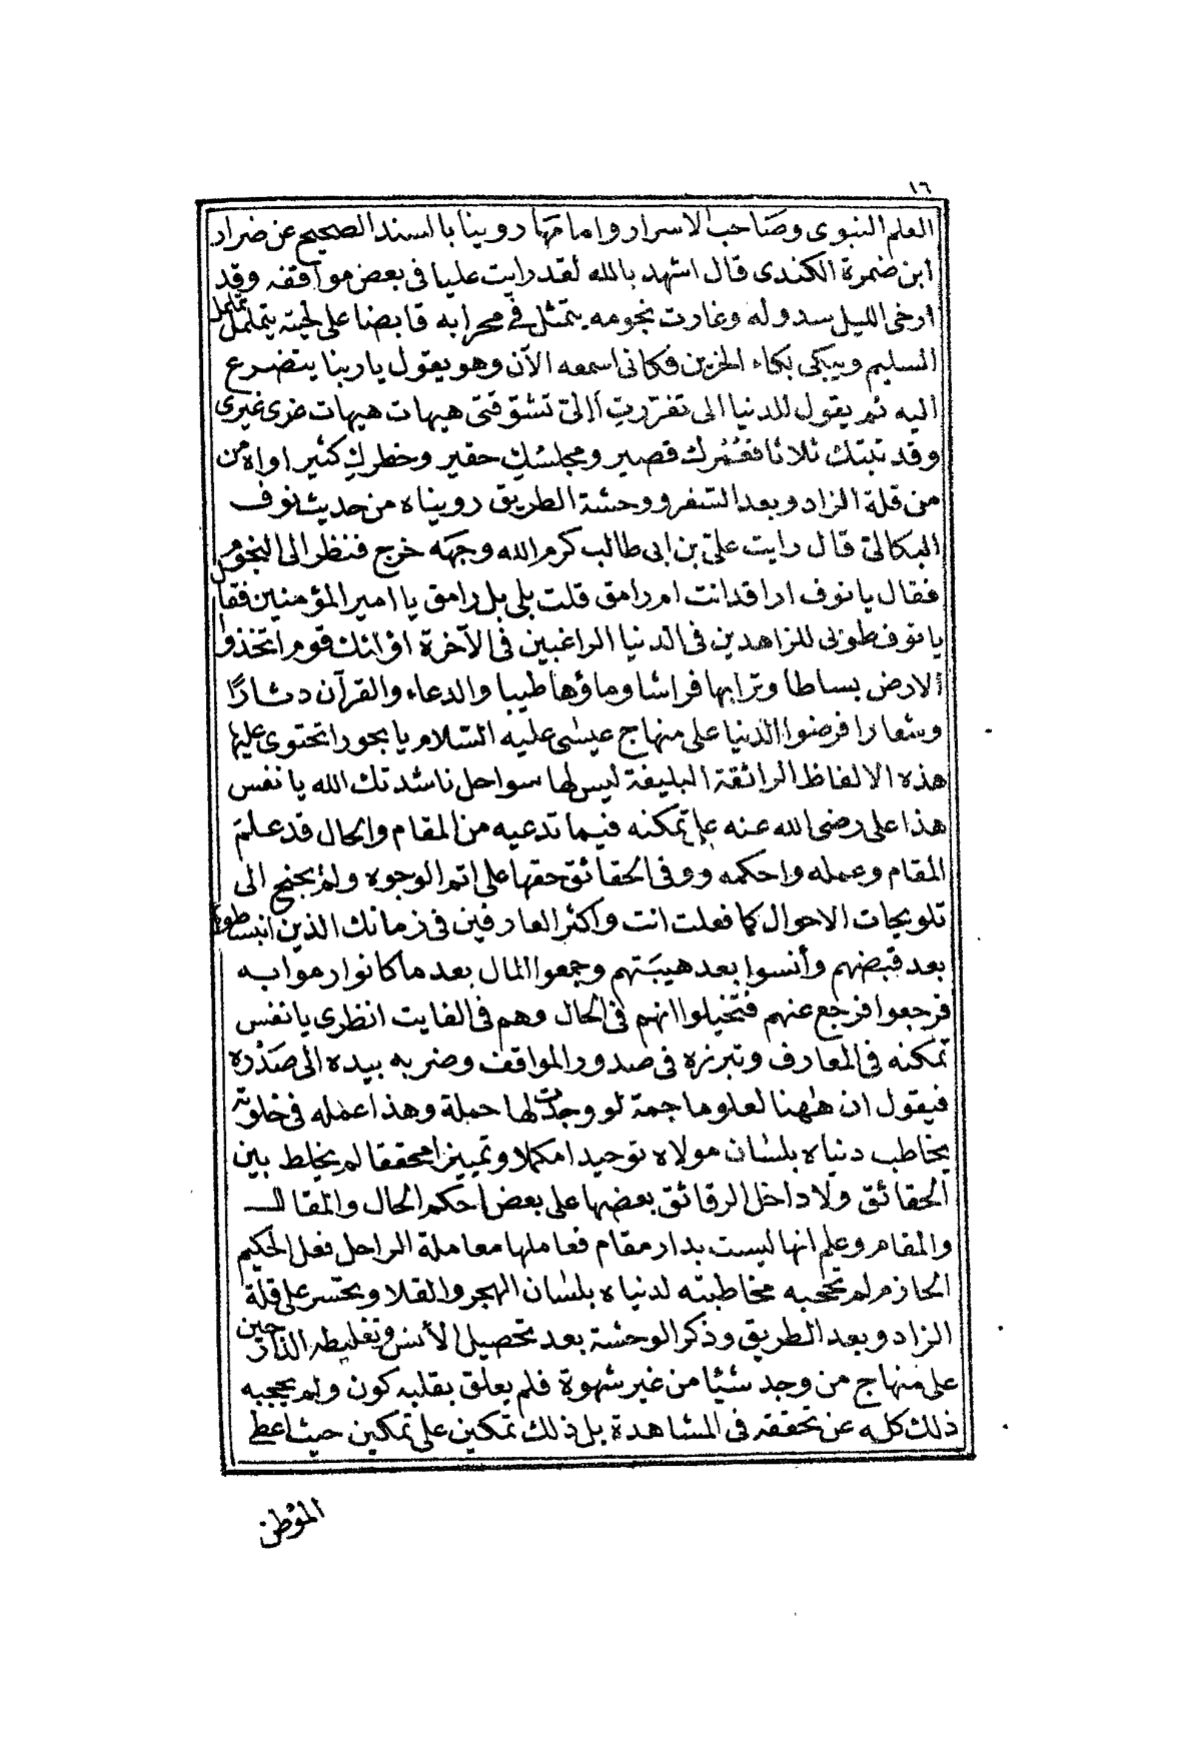 ١٦
العلم النبوى وصاحب الاسرار وامامها روينا بالسند الصحيح عن ضرار
ابن ضمرة الكندى قال اشهد بالله لقد رايت عليا فى بعض مواقفه وقد
أرخى الليل سدوله وغارت نجومه يتمثل في محرابه قابضا على لحيته يتململ تململ
السليم ويبكى بكاء الحزين فكانى اسمعه الآن وهو يقول يا ربنا يتضرع
اليه ثم يقول للدنيا الى تغررت أالىّ تشوّقتى هيهات هيهات غرى غيرى
وقد تبتك ثلاثا فعُمرك قصير ومجلسك حقير وخطرك كثير اواه من
من قلة الزاد وبعد السّفر ووحشة الطريق رويناه من حديث نوف
البكالىّ قال رايت علىّ بن ابى طالب كرم الله وجهه خرج فنظر الى النجوم
فقال يا نوف اراقد انت ام رامق قلت بلى بل رامق يا امير المؤمنين فقال
يا نوف طوبى للزاهدين فى الدنيا الراغبين فى الآخرة اولئك قوم اتخذوا
الارض بساطا وترابها فراشا وماؤها طيبا والدعاء والقرآن دثارًا
وشعارا فرضوا الدنيا على منهاج عيسى عليه السّلام يا بحورا تحتوى عليها
هذه الالفاظ الرائقة البليغة ليس لها سواحل ناشدتك الله يا نفس
هذا على رضى الله عنه على تمكنه فيما تدعيه من المقام والحال قد علم
المقام وعمله واحكمه ووفى الحقائق حقها على اتم الوجوه ولم يجنح الى
تلويحات الاحوال كما فعلت انت واكثر العارفين فى زمانك الذين انبسطوا
بعد قبضهم وأنسوا بعد هيبتهم وجمعوا المال بعد ما كانوا رموا به
فرجعوا فرجع عنهم فتخيلوا انهم فى الحال وهم فى الفايت انظرى يا نفس
تمكنه فى المعارف وتبرزه فى صدور المواقف وضربه بيده الى صَدْره
فيقول ان هٰهنا لعلوما جمة لو وجدت لها حملة وهذا عمله فى خلوته
يخاطب دنياه بلسٰان مولاه توحيدا مكملا وتمييزا محققا لم يخلط بين
الحقائق ولا داخل الرقائق بعضها على بعض أحكم الحال والمقال
والمقام وعلم انها ليست بدار مقام فعاملها معاملة الراحل فعل الحكيم
الحازم لم تحجبه مخاطبته لدنياه بلسٰان الهجر والقلا وتحسر على قلة
الزاد وبعد الطريق وذكر الوحشة بعد تحصيل الأنس وتغليطه الذاكرين
على منهاج من وجد شيئا من غير شهوة فلم يعلق بقلبه كون ولم يحجبه
ذلك كله عن تحققه فى المشاهدة بل ذلك تمكين على تمكين حيث اعطى
الموطن